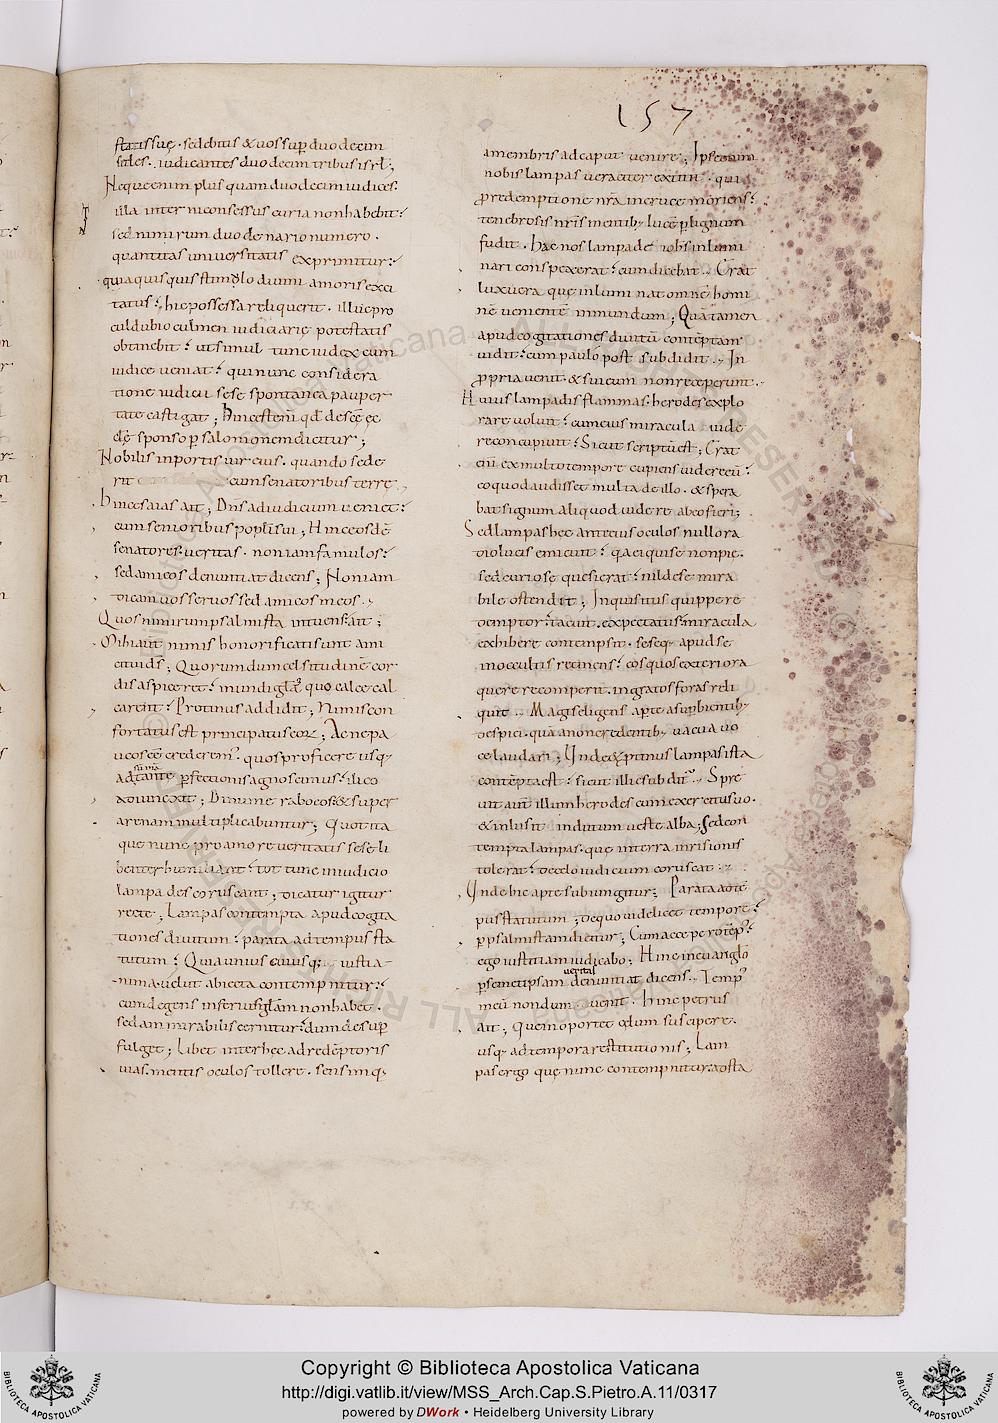 157
statissuę. sedebitis & vos sup̄ duodecim
sedes. iudicantes duodecim tribus isrl;
Neque enim plus quam duodecim iudices.
illa interni consessus curia non habebit:
sed nimirum duodenario numero.
quantitas universitatis exprimitur:
quia quisquis stimulo divini amoris exci
tatus: hic possessa reliquerit. illuc pro
cul dubio culmen iudiciarię potestatis
obtinebit: ut simul tunc iudex cum
iudice veniat: qui nunc considera
tione iudicii sese spontanea pauper
tate castigat; Hinc est enim qd de scę ęc
clę sponso p salomonem dicitur;
Nobilis in portis vir eius. quando sede
rit cum senatoribus terrę,
Hinc esaias ait; Dns ad iudicium veniet:
cum senioribus populi sui; Hinc eosdē
senatores. veritas. non iam famulos:
sed amicos denuntiat dicens; Non iam
dicam vos servos sed amicos meos.
Quos nimirum psalmista intuens: ait;
Mihi aut nimis honorificati sunt ami
ci tui ds; Quorum dum celsitudinē cor
dis aspiceret: mundi glam quo calce cal
carent: Protinus addidit; Nimis con
fortatus est principatus eoꝝ; Ac ne pa
ucos eē crederem. quos proficere usq;
ad tantę p̄fectionis agnoscimus: ilico
adiunxit; Dinumerabo eos: & super
arenam multiplicabuntur; Quot ita
que nunc pro amore veritatis sese li
benter humiliant: tot tunc in iudicio
lampades coruscant; dicatur igitur
recte; Lampas contempta apud cogita
tiones divitum: parata ad tempus sta
tutum: Quia unius cuiusq; iusti a
nima. velut abiecta contemp nitur:
cum degens inferius glam non habet.
sed admirabilis cernitur: dum desup̄
fulget; Libet inter hęc ad redēptoris
vias. mentis oculos tollere. sensimq;
a membris ad caput venire; Ipse enim
nobis lampas veraciter extitit. qui
p redemptione nra in cruce moriens:
tenebrosis nris mentib; lucē p lignum
fudit. Hac nos lampade iohs inlumi
nari conspexerat: cum dicebat. Erat
lux vera quę inluminat omnē homi
nē venientē in mundum; Quā tamen
apud cogitationes divitū contēptam
vidit: cum paulo post subdidit. In
ppria venit & sui eum non receperunt.
Huius lampadis flammas. herodes explo
rare voluit: cum eius miracula vide
re concupivit: Sicut scriptū est; Erat
enī ex multo tempore cupiens videre eū:
eo quod audisset multa de illo. & spera
bat signum aliquod videre ab eo fieri;
Sed lampas hęc ante eius oculos nullo ra
dio lucis emicuit: qa ei qui se non pie.
sed curiose quesierat: nil de se mira
bile ostendit; Inquisitus quippe re
demptor: tacuit. expectatus: miracula
exhibere contempsit. seseq; apud se
in occultis retinens: eos quos exteriora
querere comperit. ingratos foras reli
quit. Magis eligens apte a supbientib;
despici. quā a non credentib; vacua vo
ce laudari; Unde & ptinus lampas ista
contēpta est: sicut illic subditur. Spre
vit aut illum herodes cum exercitu suo.
& inlusit indutum veste alba; Sed con
tempta lampas. quę in terra inrisionis
tolerat: de cęlo iudicium coruscat:
Unde hic apte subiungitur; Parata ad tē
pus statutum; de quo videlicet tempore:
p psalmistam dicitur; Cum accepero tēp:
ego iustitiam iudicabo; Hinc in evanglo
p semetipsam veritas denuntiat dicens. Temp
meū nondum venit. Hinc petrus
ait; Quem oportet cęlum suscipere.
usq; ad tempora restitutionis; Lam
pas ergo quę nunc contempnitur: ad sta
Copyright © Biblioteca Apostolica Vaticana
http://digi.vatlib.it/view/MSS_Arch.Cap.S.Pietro.A.11/0317
powered by DWork • Heidelberg University Library